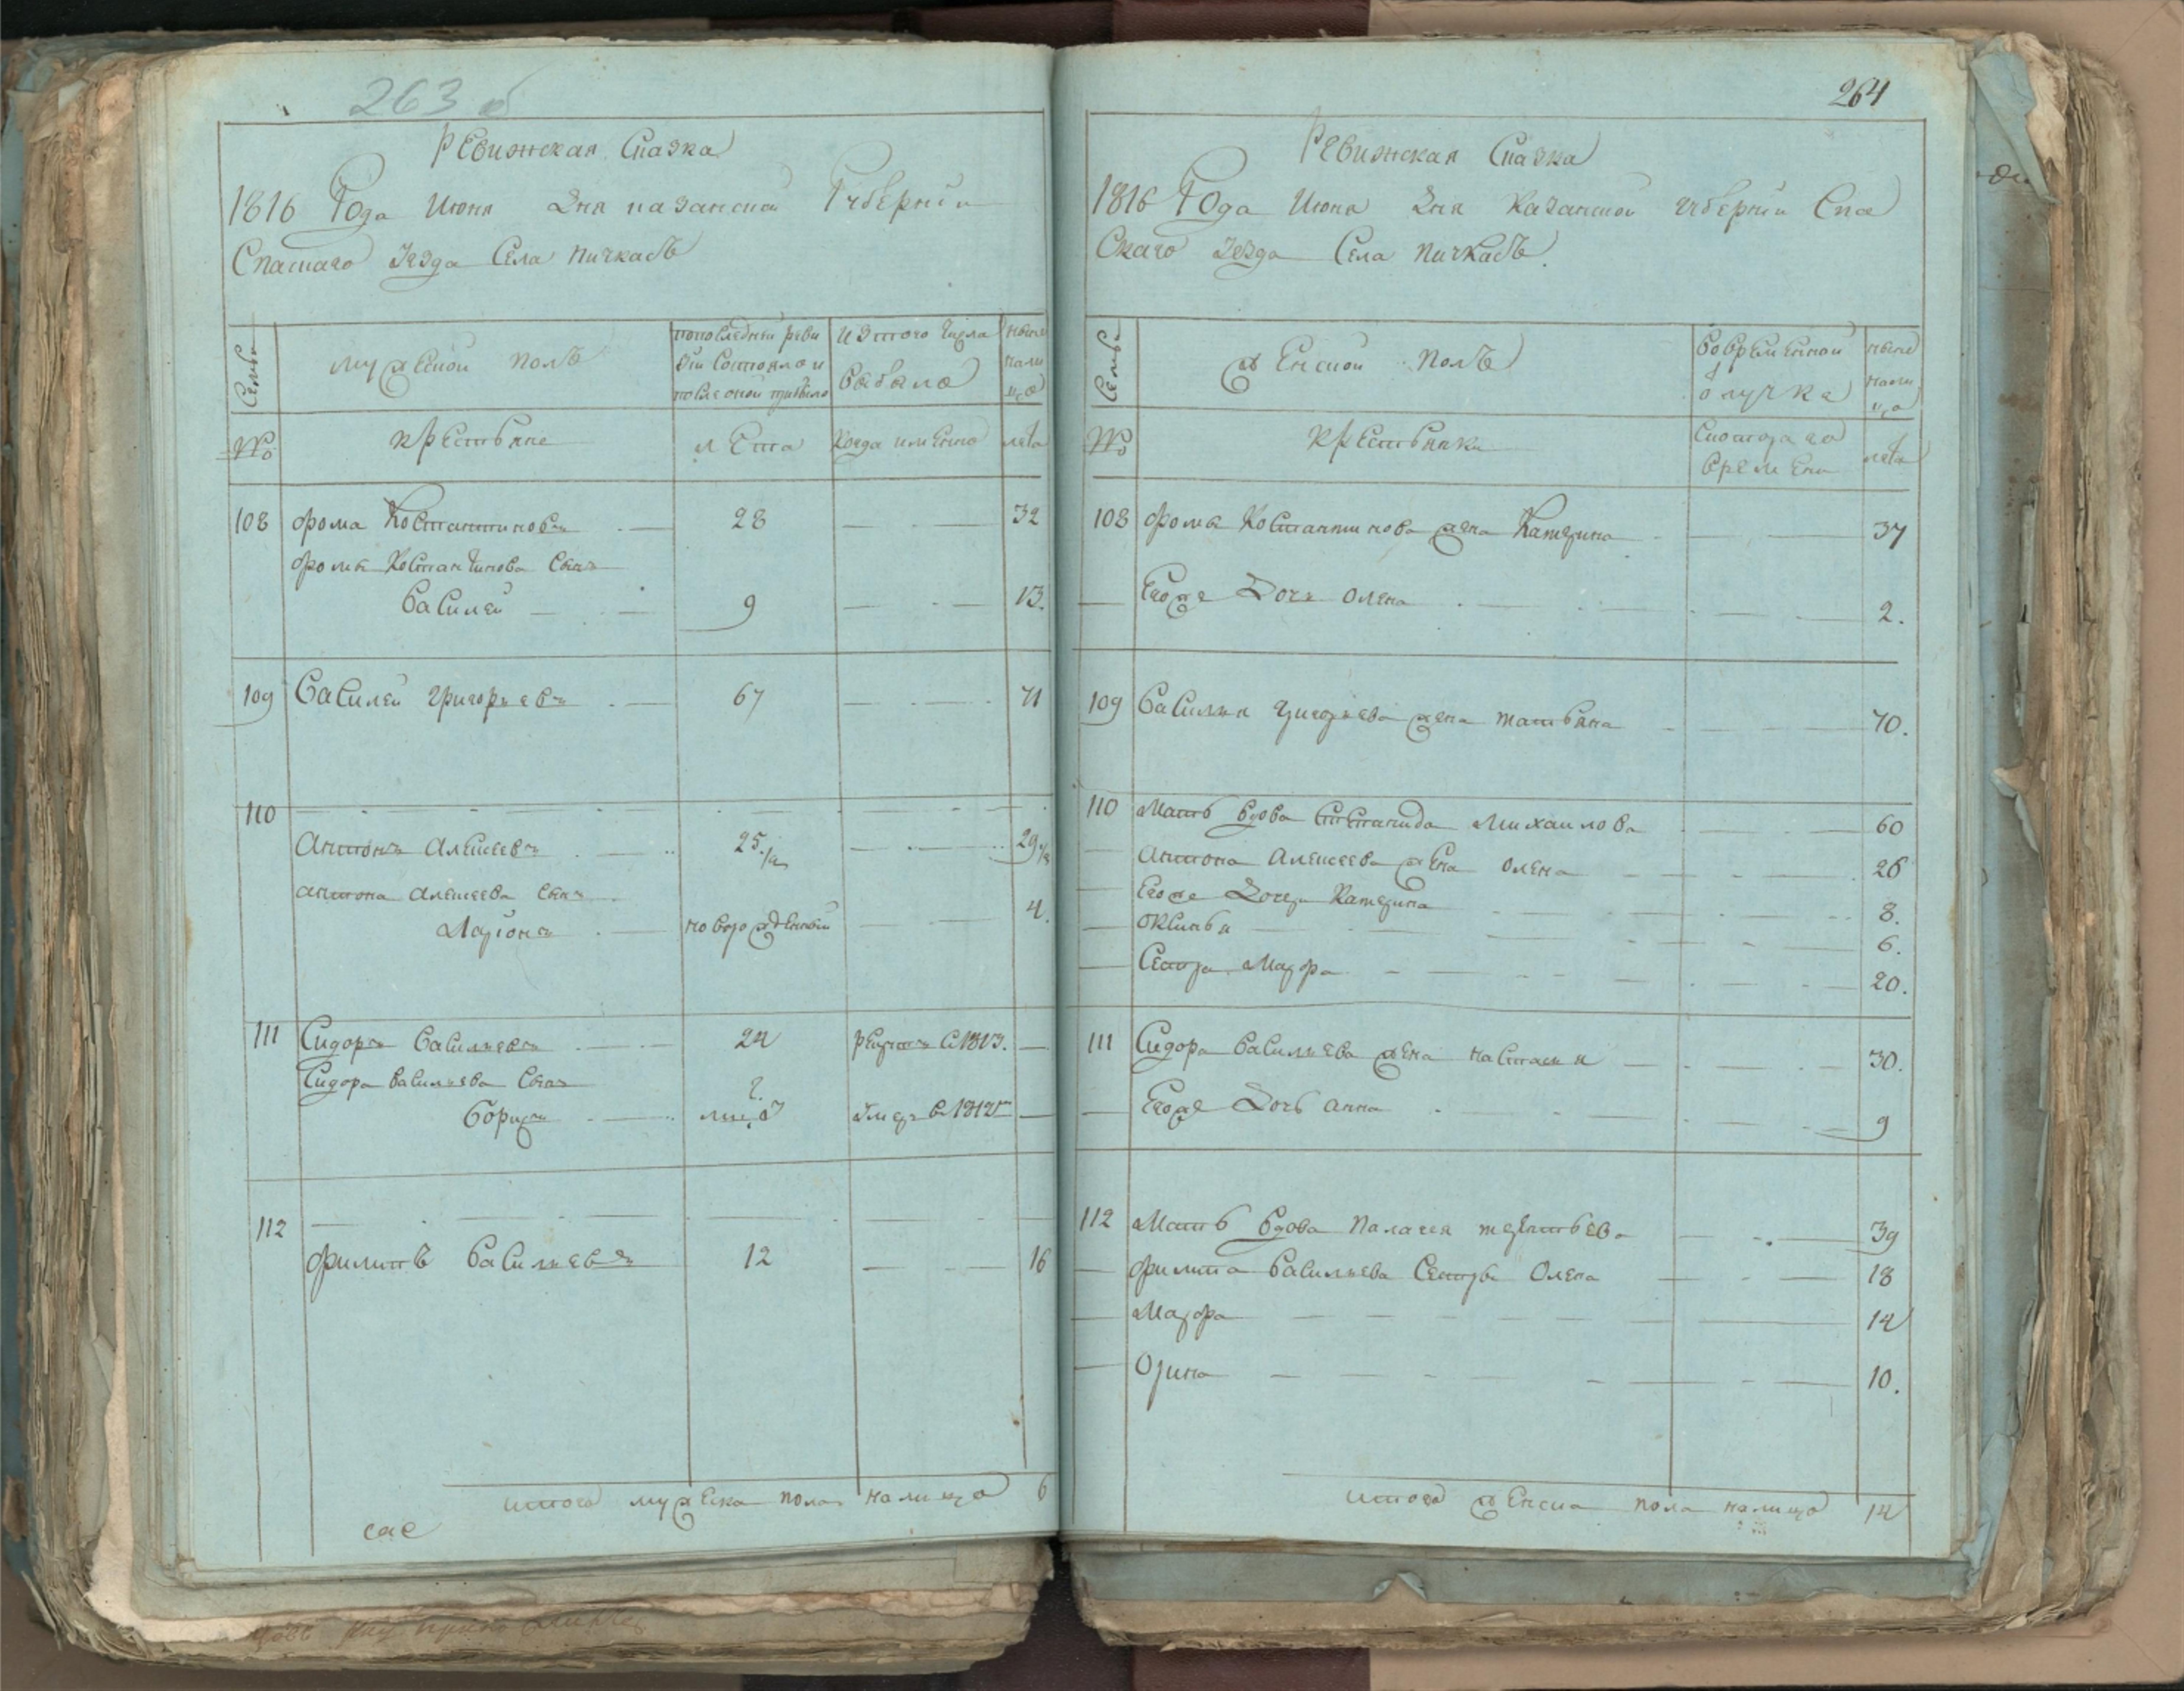 263 об
Ревижская Сказка
1816 Года Июня Дня казанской Губернiи
Спаскаго Уезда Села пичкасъ
Семьи
мужеской полъ
пополедней реви
зiи Состояло и
после оной прибыло
Из того числа
выбыло
ныне
нали
цо
№
крестьяне
лета
Когда имянно
лета
108 фома Костантиновъ 28 32
фома Костантинова Сынъ
Василей 9 13.
109 Василей григорьевъ 67 71
110
Антонъ Алексеевъ 25 1/2 29 1/2
антона Алексеева Сынъ
Ларiонъ новорожденный 4.
111 Сидоръ Васильевъ 24 рекрутъ С 1813.
Сидора Васильева Сынъ
Борисъ Умеръ В 1812
112
филипъ Васильевъ 12 16
итого мужеска пола налицо 6
264
Ревижская Сказка
1816 Года Июня Дня Казанской губернiи Спа
Скаго Уезда Села пичкасъ.
Семьи
женской полъ
Во временной
отлучке
ныне
нали
цо
№
крестьянки
С котораго
времени
лета
108 фома Костантинова жена Катерина 37
Его же Дочь олена 2.
109 Василья григорьева жена татьяна 70.
110 Мать вдова Степанида Михаилова 60
Антона Алексеева жена олена 26
Его же Дочери Катерина 8.
оксинья 6.
Сестра Марфа 20.
111 Сидора Васильева жена настасья 30.
Его же Дочь анна 9
112 Мать вдова палагея терентьева 39
филипа Васильева Сестры Олена 18
Марфа 14
Орина 10.
итого женска пола налицо 14